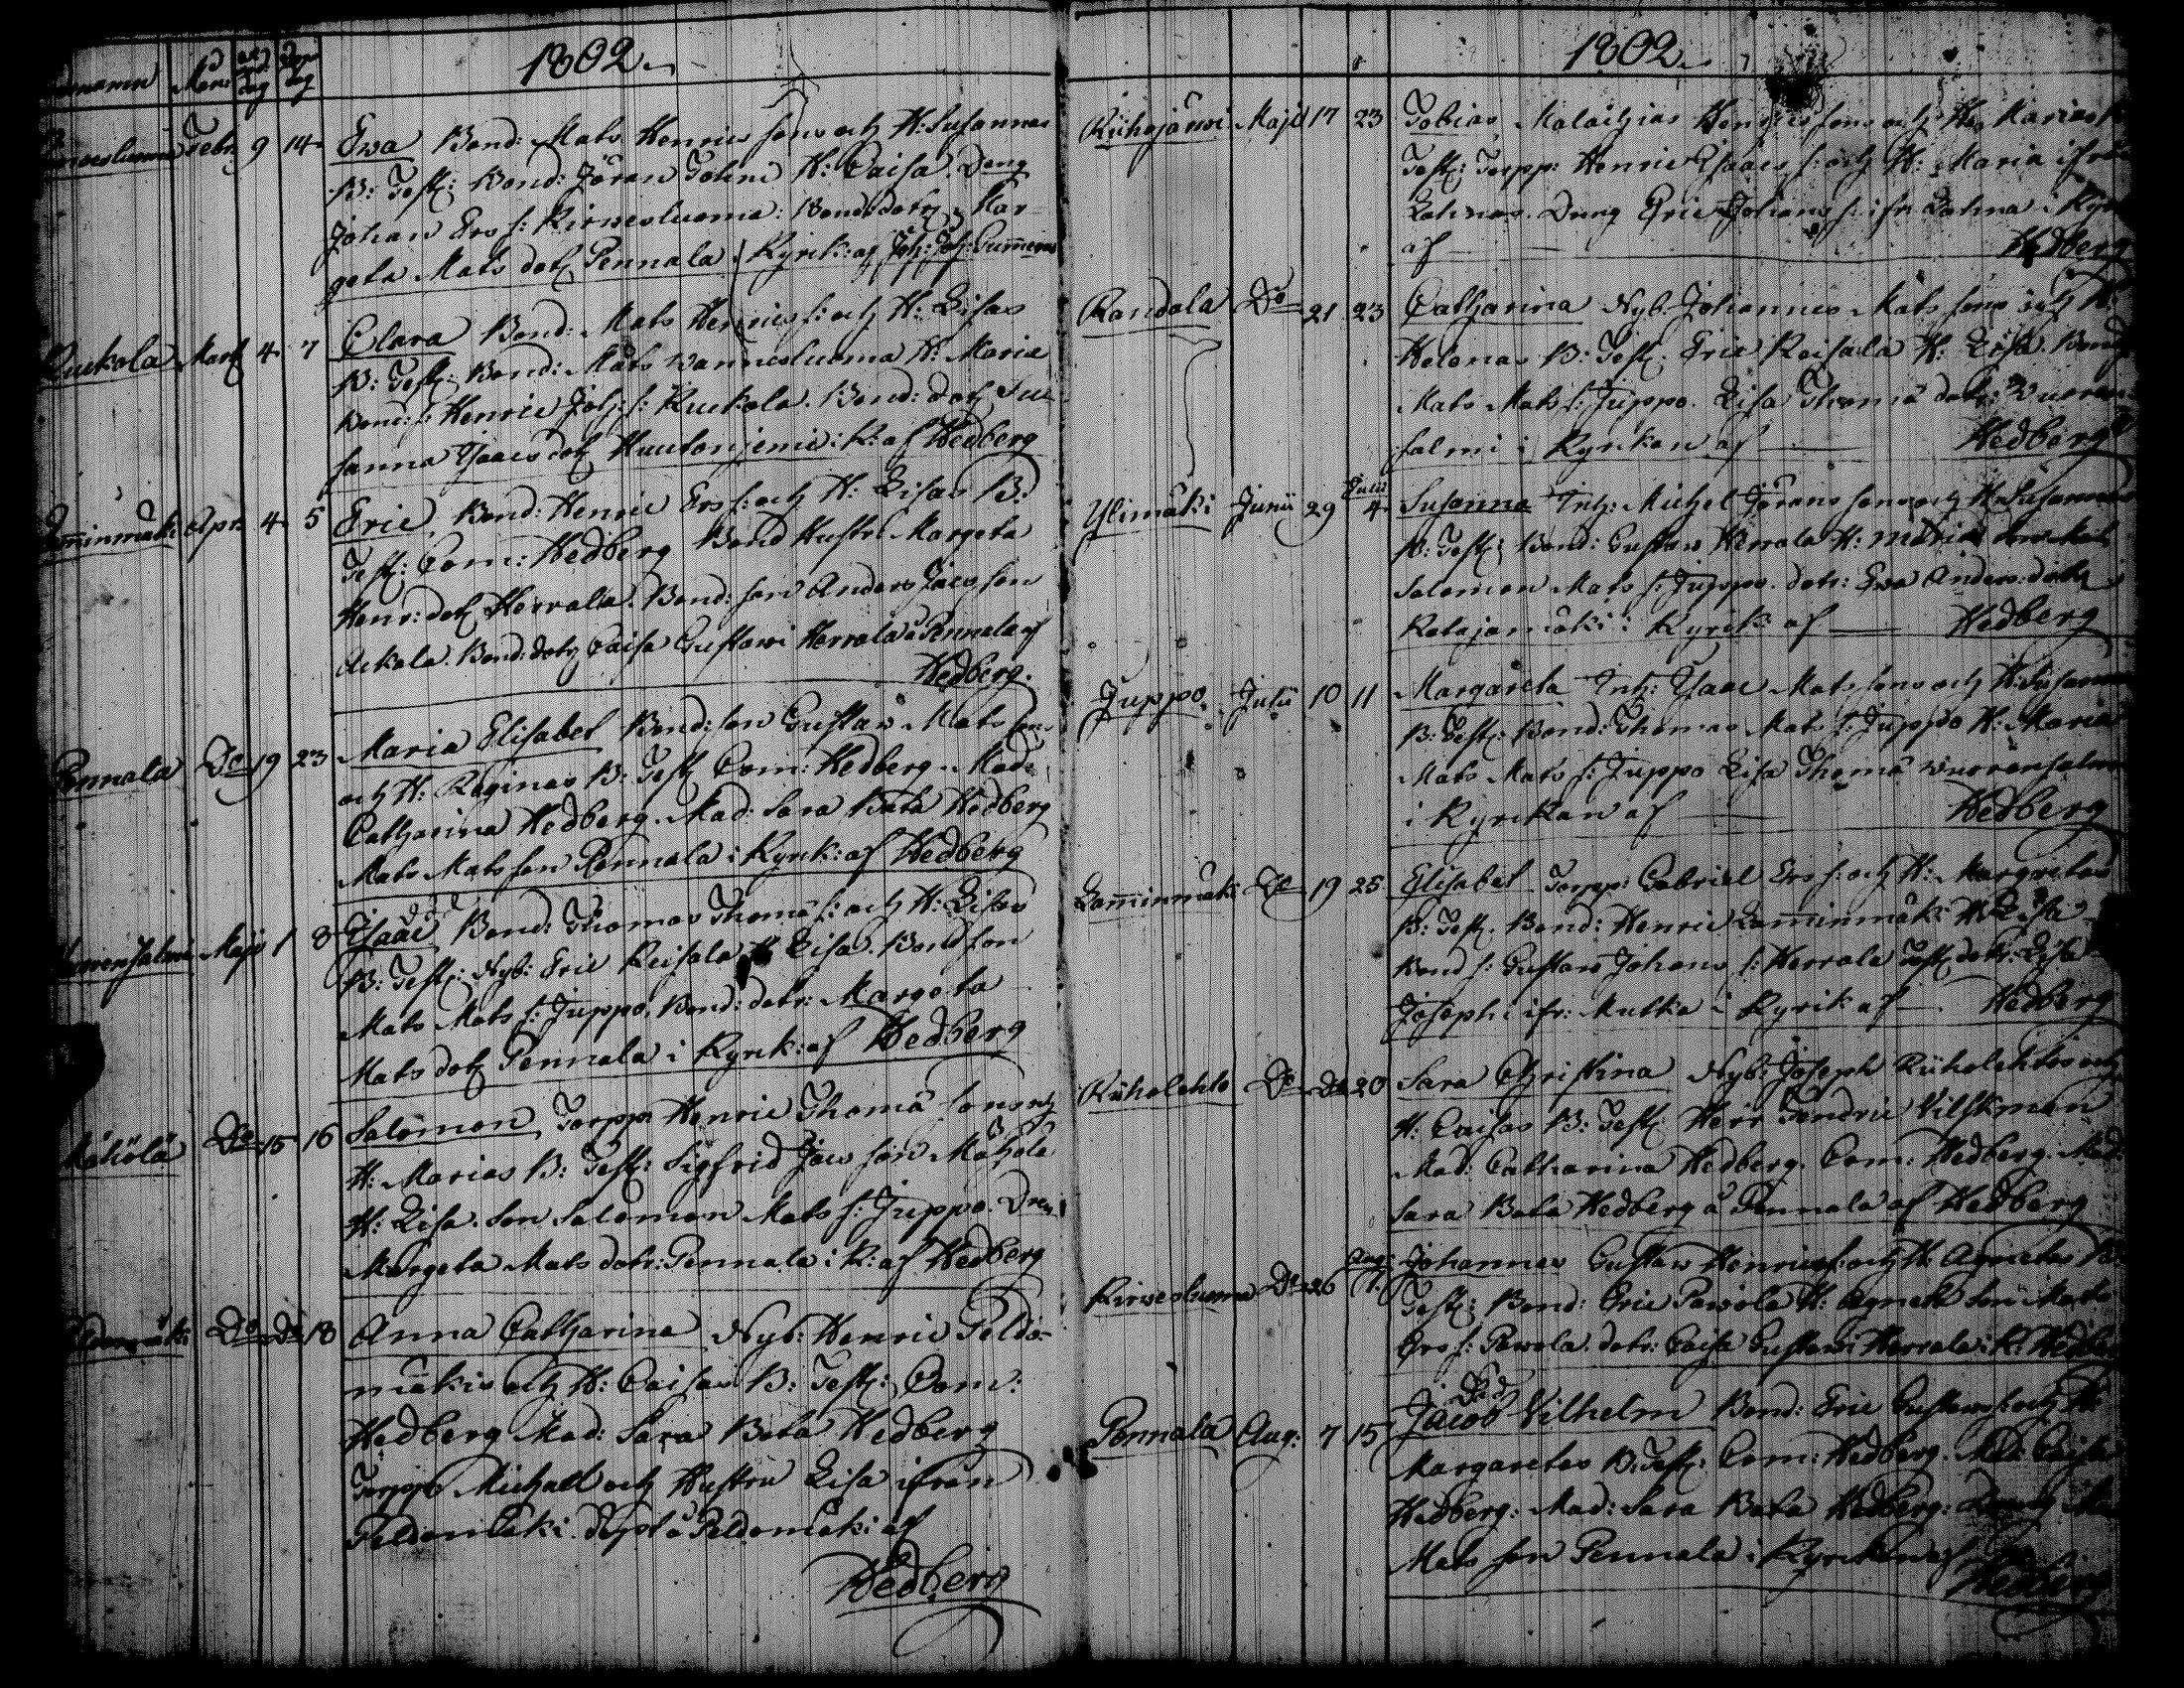 1802.
Febr 9 14 Ewa Bond: Mats Henrics sons och H: Susannas
B: Test: Bond: Jöran Johns H: Caisa. Dreng
Johan Ers s: Kirvesluoma: Bond: dotr Mar
geta Mats dotr Pennala i Kyrck: af Joh: Joh: Gummerus
Ruckola Mart 4 7 Clara Bond: Mats Henrics s: och H: Lisas
B: Test: Bond: Mats Wannesluoma H: Maria
Bond: s: Henric Joh: s: Ruckola. Bond: dotr Su
sanna Isaacs dotr Huutoniemi i K: af Hedberg
Lamminmäki Apr: 4 5 Eric Bond: Henric Ers s: och H: Lisas B:
Test: Com: Hedberg Bond Hustr Margeta
Henr: dotr Herrala. Bond: son Anders Jacs son
Bond: dotr Caisa Gustavi Herrala å Pennala af
Hedberg.
Pennala Do 19 23 Maria Elisabet Bond: son Gustav Mats sons
och H: Reginas B: Test Com: Hedberg. Mad:
Catharina Hedberg. Mad: Sara Beata Hedberg
Mats Mats son Pennala i Kyrck: af Hedberg
Majo 1 3 Isaac död Bond: Thomas Thomæ s: och H: Lisas
B: Test: Nyb: Eric Reisala H Lisa. Bond son
Mats Mats s: Juppo. Bond: dotr: Margeta
Mats dotr Pennala i Kyrck: af Hedberg
Mähölä Do 15 16 Salomon Torpp: Henric Thomæ sons och
H: Marias B: Test: Sigfrid Jacs son Mähölä
H: Lisa. Son Salomon Mats s: Juppo.
Margeta Mats dotr: Pennala i K: af Hedberg
Peldomäki Do Do 18 Anna Catharina Nyb: Henric Peldo-
mäkis och H: Caisas B: Test: Com:
Hedberg Mad: Sara Beata Hedberg
Torpp: Michael och Hustru Lisa ifrån
Peldomäki. Döpt å Peldomäki af
Hedberg
1802.
Riihojärvi Maji 17 23 Tobias Malachias Henrics sons och H: Marias B:
Test: Torpp: Henric Isaacs s: och H: Maria ifrån
Dreng Eric Johans s: ifr: i Kyrck
af Hedberg
Randala Do 21 23 Catharina Nyb: Johannes Mats sons och H:
Helenas B: Test: Eric Reisala H: Lisa. Bond
Mats Mats s: Juppo. Lisa Thomæ dotr: Wuoren
salmi i Kyrckan af Hedberg
Ylimäki Junii 29 Julii 4 Susanna Inh: Michel Jörans sons och H: Susannas
B: Test: Bond: Gustav Herrala H: Maria
Salomon Mats s: Juppo. dotr: Ewa Anders: dotr
Katajamäki i Kyrck af Hedberg
Juppo Julii 10 11 Margareta Inh: Isaac Mats sons och H: Susannas
B: Test: Bond: Thomas Mats s: Juppo H: Maria
Mats Mats s: Juppo Lisa Thomæ Wuorensalmi
i Kyrckan af Hedberg
Lamminmäki Do 19 25 Elisabet Torpp: Gabriel Ers s: och H: Margretas
B: Test. Bond: Henric Lamminmäki H: Lisa
Bond s: Gustav Johans s: Herrala dotr: Lisa
Josephi ifr: Mutka i Kyrck af Hedberg
Riiholehto Do Do 20 Sara Christina Nyb: Joseph Riiholehtos och
H: Caisas B: Test: Herr Fendric Vilskman
Mad: Catharina Hedberg. Com: Hedberg. Mad:
Sara Beata Hedberg å Pennala af Hedberg
Kirvesluoma Do 26 Aug: 1. Johannes Gustav Henrics s: och H: Agnetas B:
Test: Bond: Eric Pavola H: Agneta Son Mats
Ers s: Pavola. dotr: Caisa Gustavi Herrala i K: Hedberg
Pennala Aug: 7 15 Jacob Vilhelm död Bond: Eric Gustavs s: och H:
Margaretas B: Test: Com: Hedberg. Mad: Caisa
Hedberg: Mad: Sara Beata Hedberg: Dreng
Mats son Pennala i Kyrckan af
Hedberg